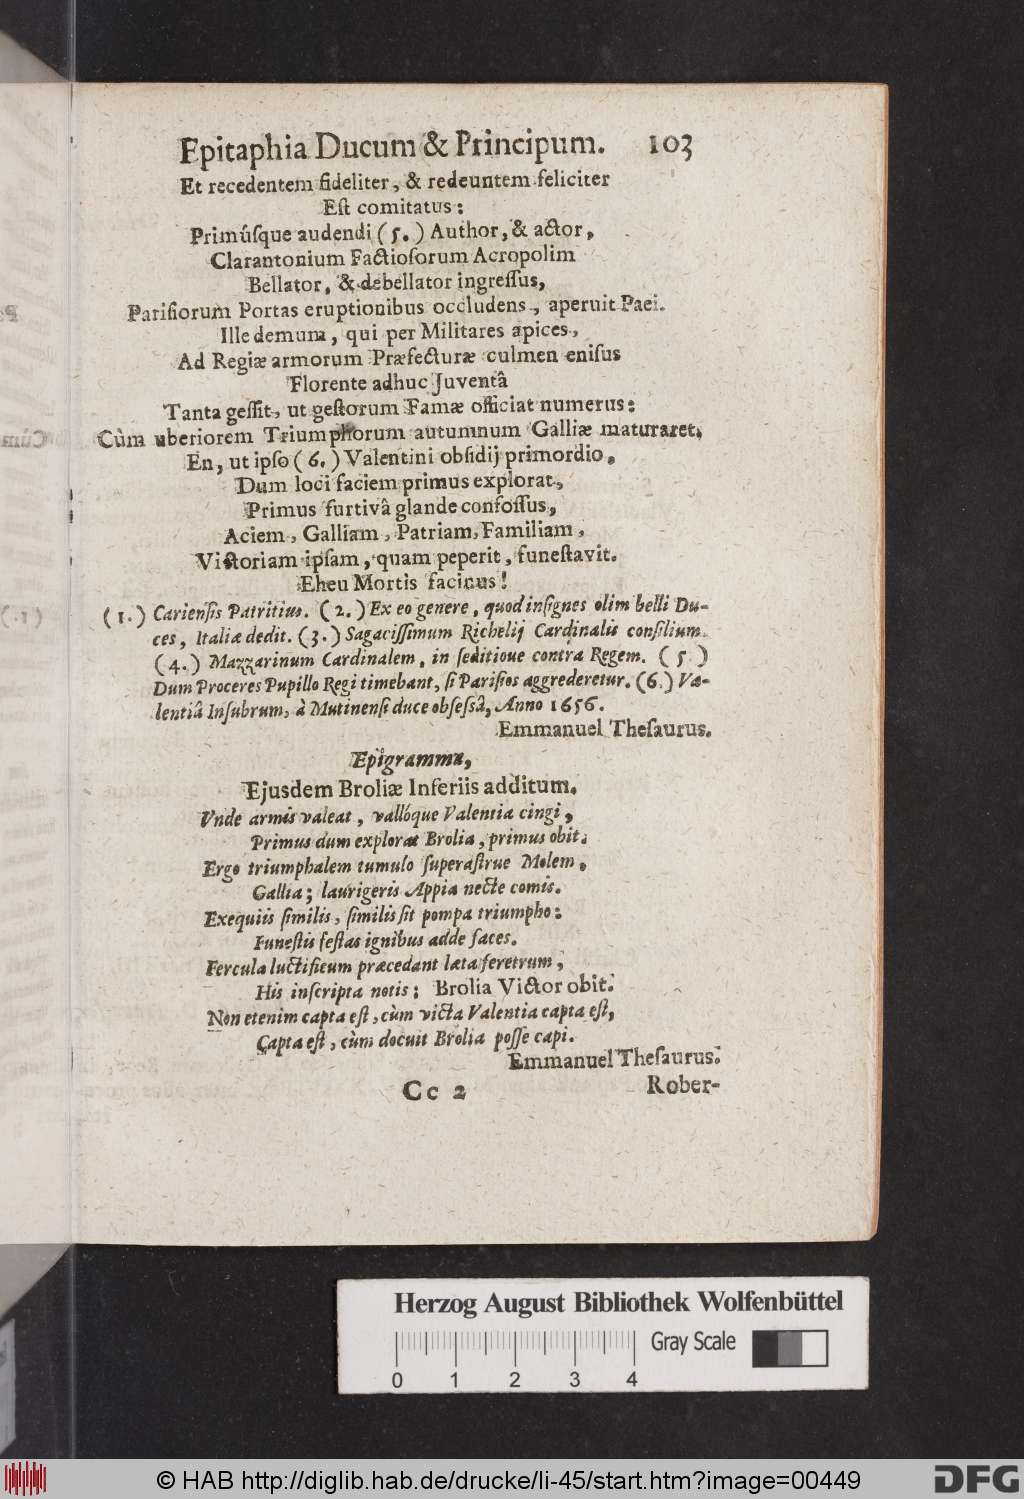 Epitaphia Ducum & Principum. 103
Et recedentem fideliter, & redeuntem feliciter
Est comitatus:
Primúsque audendi (5.) Author, & actor,
Clarantonium Factiosorum Acropolim
Bellator, & debellator ingressus,
Parisiorum Portas eruptionibus occludens, aperuit Paei.
Ille demum, qui per Militares apices,
Ad Regiæ armorum Præfecturæ culmen enisus
Florente adhuc Juventâ
Tanta gessit, ut gestorum Famæ officiat numerus:
Cùm uberiorem Triumphorum autumnum Galliæ maturaret,
En, ut ipso (6.) Valentini obsidij primordio,
Dum loci faciem primus explorat,
Primus furtivâ glande confossus,
Aciem, Galliam, Patriam, Familiam,
Victoriam ipsam, quam peperit, funestavit.
Eheu Mortis facinus!
(1.) Cariensis Patritius. (2.) Ex eo genere, quod insignes olim belli Du-
ces, Italiæ dedit. (3.) Sagacissimum Richelij Cardinalis consilium.
(4.) Mazzarinum Cardinalem, in seditioue contra Regem. (5)
Dum Proceres Pupillo Regi timebant, si Parisios aggrederetur. (6.) Va-
lentiâ Insubrum, à Mutinensi duce obsessâ, Anno 1656.
Emmanuel Thesaurus.
Epigramma,
Ejusdem Broliæ Inferiis additum.
Vnde armis valeat, vallóque Valentia cingi,
Primus dum explorat Brolia, primus obit.
Ergo triumphalem tumulo superastrue Molem,
Gallia; laurigeris Appia necte comis.
Exequiis similis, similis sit pompa triumpho:
Funestis festas ignibus adde faces.
Fercula luctificum præcedant læta feretrum,
His inscripta notis; Brolia Victor obit.
Non etenim capta est, cùm victa Valentia capta est,
Capta est, cùm docuit Brolia posse capi.
Emmanuel Thesaurus.
Cc 2 Rober-
Herzog August Bibliothek Wolfenbüttel
Gray Scale
0 1 2 3 4
© HAB http://diglib.hab.de/drucke/li-45/start.htm?image=00449
DFG